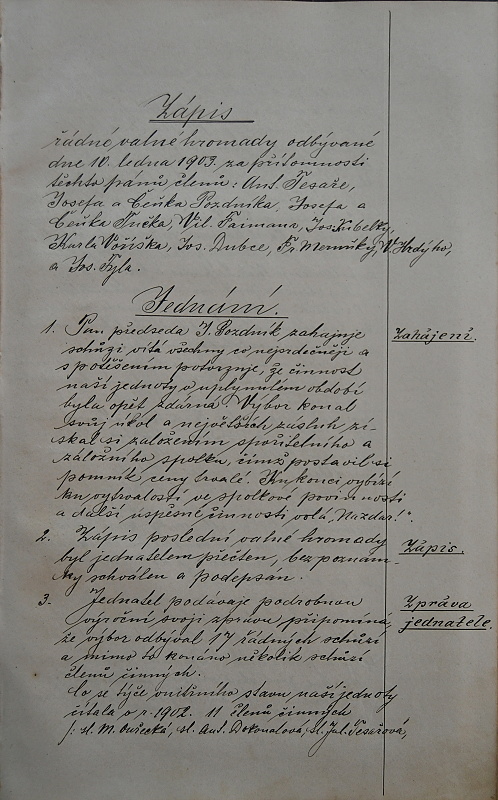 Zápis
řádné valné hromady odbývané
dne 10. ledna 1903. za přítomnosti
těchto pánů členů: Ant. Tesaře,
Josefa a Čeňka Pozdníka, Josefa a
Čeňka Tučka, Vil. Faimana, Jos. Kubelky,
Karla Voříška, Jos. Dubce, Fr. V. Hrdýho,
a Jos. Tyla.
Jednání.
1. Pan předseda J. Pozdník zahajuje
Zahájení.
schůzi vítá všechny co nejsrdečněji a
s potěšením potvrzuje, že činnost
naší jednoty v uplynulém období
byla opět zdárná. Výbor konal
svůj úkol a největších zásluh zí-
skal si založením spořitelního a
záložního spolku, čímž postavil si
pomník ceny trvalé. Ku konci vybízí
ku vytrvalosti ve spolkové povinnosti
a další úspěšné činnosti volá "Nazdar!".
2. Zápis poslední valné hromady
Zápis.
byl jednatelem přečten, bez poznám-
ky schválen a podepsán.
3. Jednatel podávaje podrobnou
Zpráva
výroční svoji zprávu připomíná,
jednatele.
že výbor odbýval 17 řádných schůzí
a mimo to konáno několik schůzí
členů činných.
Co se týče vnitřního stavu naší jednoty
čítala v r. 1902. 11 členů činných
/: sl. M. sl. Ant. Dokonalová, sl. Jul. Tesařová,